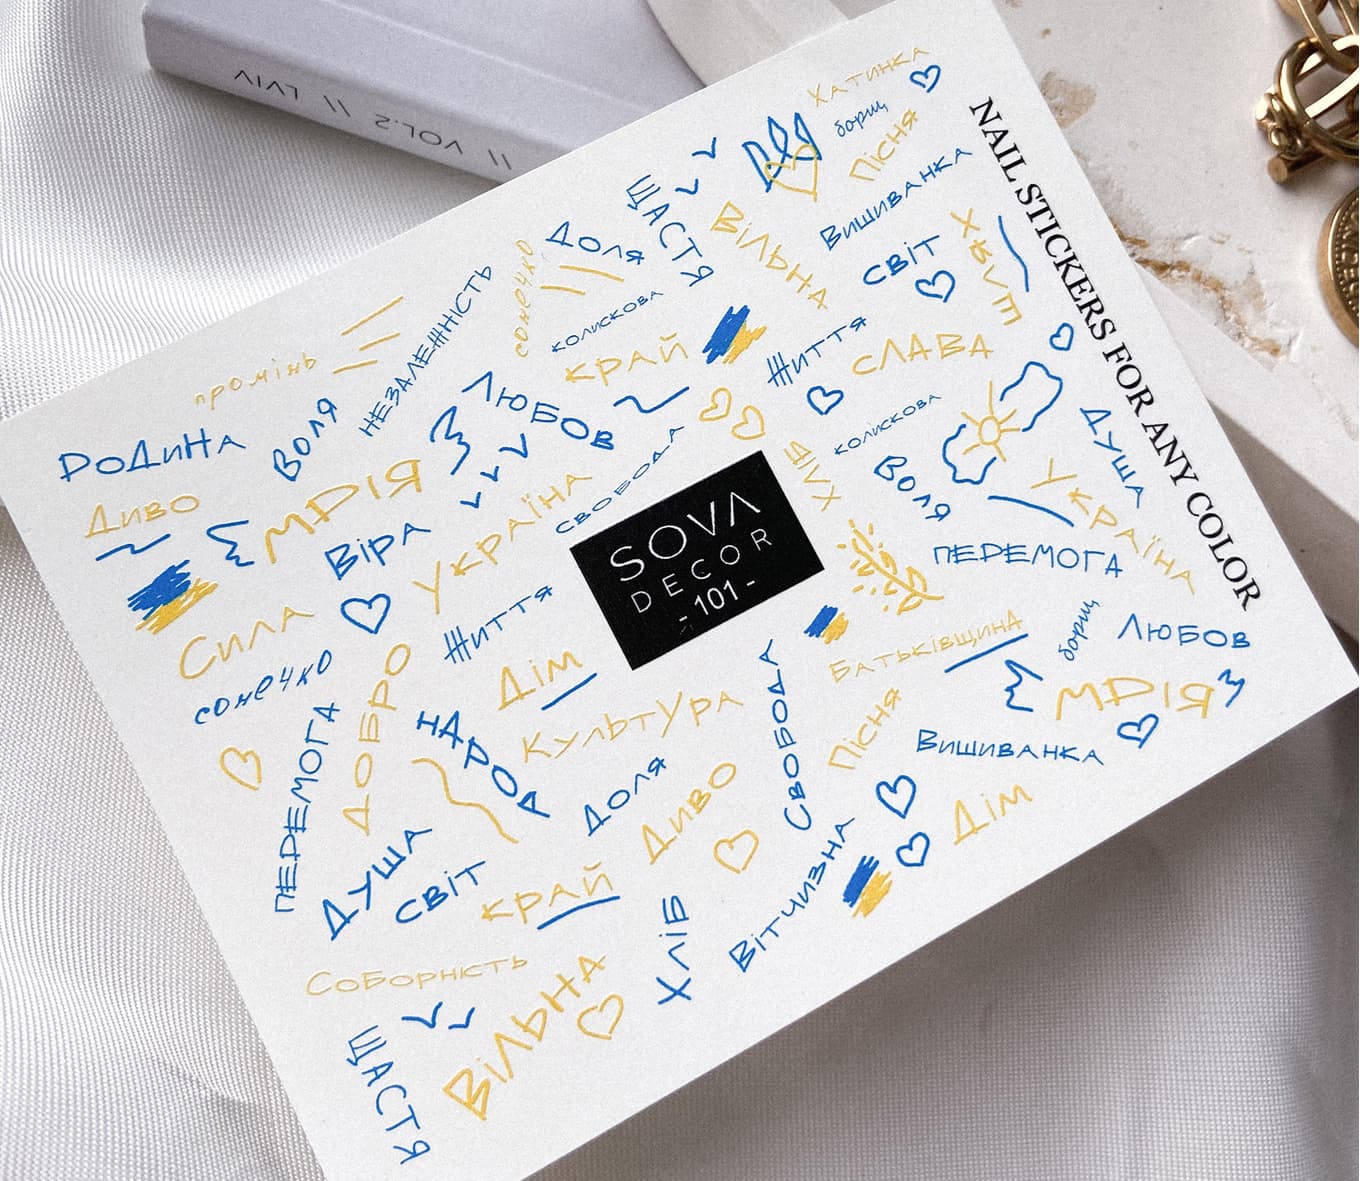 VOL.2 // LVIV //
NAIL STICKERS FOR ANY COLOR
Хатинка
борщ
Пісня
Вишиванка
Щастя
Вільна
світ
Доля
сонечко
колискова
край
Життя
слава
промінь
незалежність
Любов
свобода
колискова
Хліб
Воля
Душа
Україна
Родина
Воля
Диво
Мрія
Віра
Україна
SOVA
DECOR
-101-
перемога
Сила
сонечко
Життя
Дім
Добро
перемога
народ
Культура
Свобода
Батьківщина
борщ
Любов
Мрія
Пісня
Вишиванка
Доля
Диво
Дім
Вітчизна
Душа
світ
край
Хліб
Соборність
Вільна
Щастя